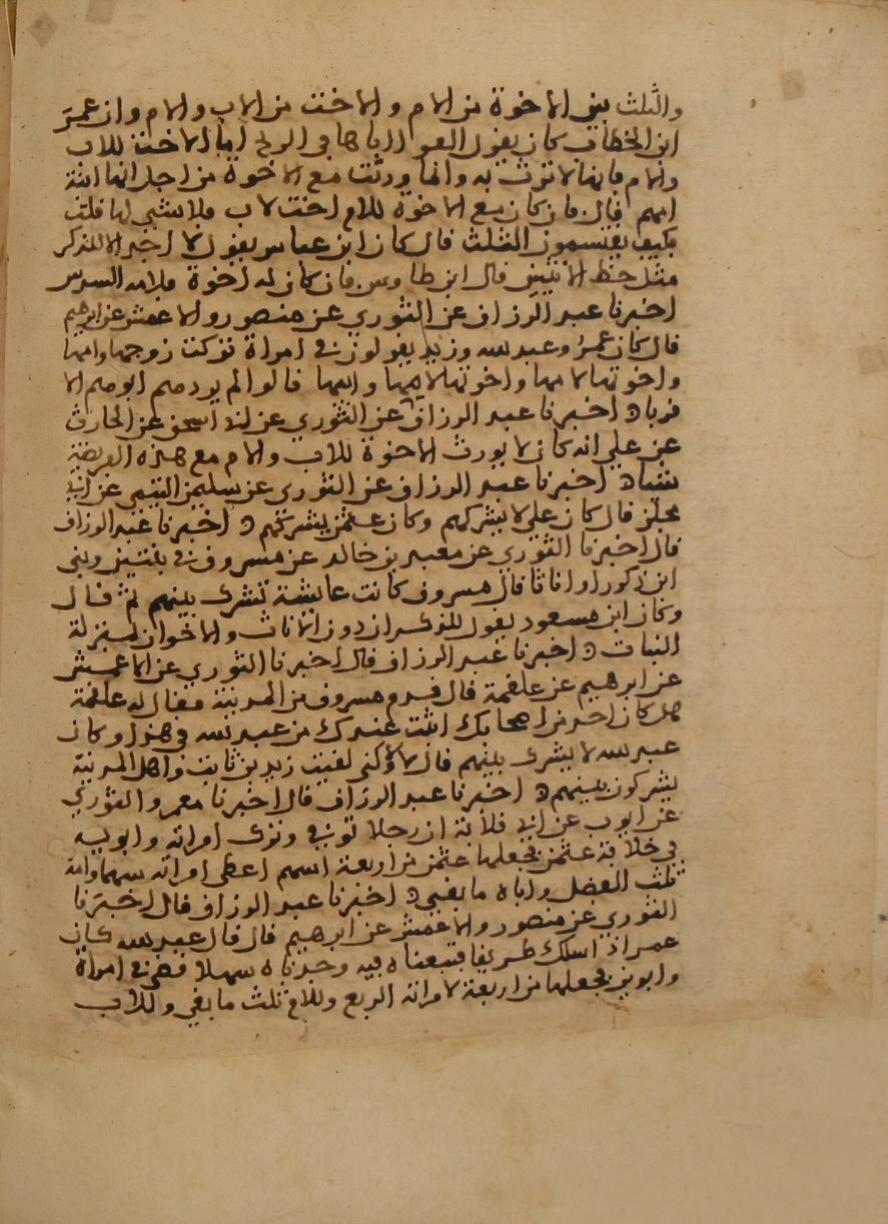 والثلث بين الاخوة من الام والاخت من الاب والام وان عمر
ابن الخطاب كان يقول القوا اباها في الريح اما الاخت للاب
والام فانها لا ترث به وانما ورثت مع الاخوة من اجل انها ابنة
امهم قال فان كان مع الاخوة للام اخت لاب فلا شي لها قلت
فكيف يقتسمون الثلث قال كان ابن عباس يقول لا اجد الا للذكر
مثل حظ الانثيين قال ابن طاوس فان كان له اخوة فلامه السدس
اخبرنا عبد الرزاق عن الثوري عن منصور والاعمش عن ابرهيم
قال كان عمر وعبد الله وزيد يقولون في امراة تركت زوجها وامها
واخوتها لامها واخوتها لابيها وامها قالوا لم يزدهم ابوهم الا
قربا اخبرنا عبد الرزاق عن الثوري عن ابي اسحق عن الحارث
عن علي انه كان لا يورث الاخوة للاب والام مع هذه الفريضة
شيا اخبرنا عبد الرزاق عن الثوري عن سليمن التيمي عن ابي
مجلز قال كان علي لا يشركهم وكان عثمن يشركهم اخبرنا عبد الرزاق
قال اخبرنا الثوري عن معبد بن خالد عن مسروق في بنتين وبني
ابن ذكورا واناثا قال مسروق كانت عايشة تشرك بينهم ثم قال
وكان ابن مسعود يقول للذكران دون الاناث والاخوان بمنزلة
البنات اخبرنا عبد الرزاق قال اخبرنا الثوري عن الاعمش
عن ابرهيم عن علقمة قال قدم مسروق من المدينة فقال له علقمة
هل كان احد من اصحابك اثبت عندك من عبد الله في هذا وكان
عبد الله لا يشرك بينهم قال لا ولكني لقيت زيد بن ثابت واهل المدينة
يشركون بينهم اخبرنا عبد الرزاق قال اخبرنا معمر والثوري
عن ايوب عن ابي قلابة ان رجلا توفي وترك امراته وابويه
في خلافة عثمن فجعلها عثمن من اربعة اسهم اعطى امراته سهما وامه
ثلث الفضل واباه ما بقي اخبرنا عبد الرزاق قال اخبرنا
الثوري عن منصور والاعمش عن ابرهيم قال قال عبد الله كان
عمر اذا سلك طريقا فتبعناه فيه وجدناه سهلا قضى في امراة
وابوين فجعلها من اربعة لامراته الربع وللام ثلث ما بقي وللاب